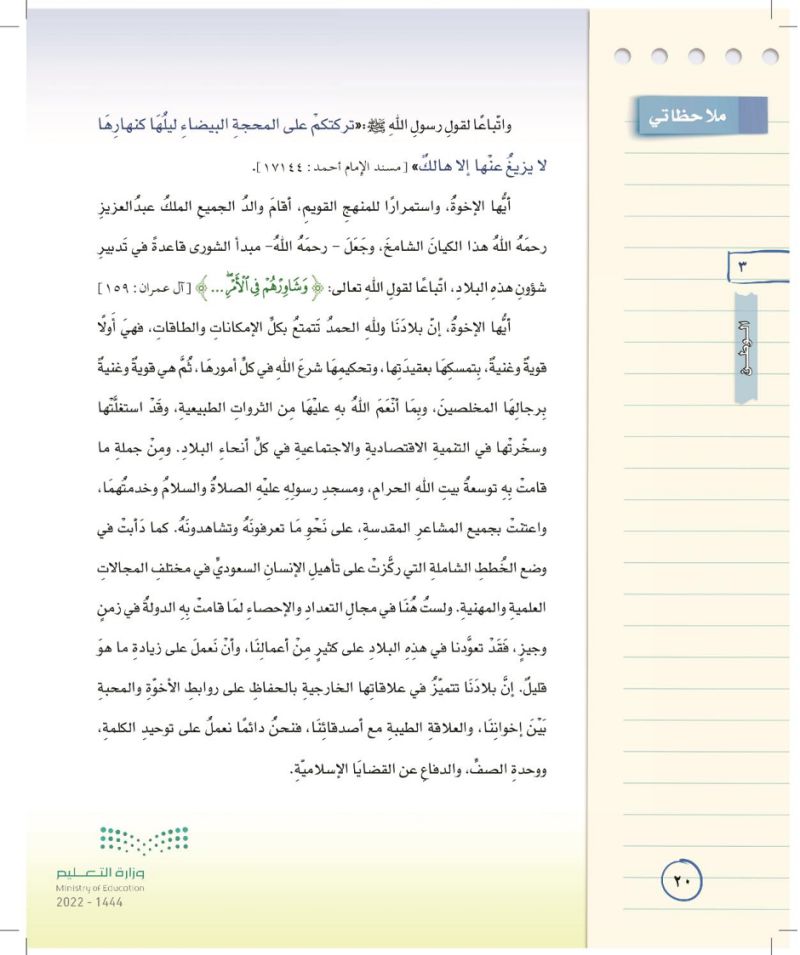 ملاحظاتي
٣
الـوطـن
واتّباعًا لقولِ رسولِ اللهِ ﷺ:«تركتكمْ على المحجةِ البيضاءِ ليلُهَا كنهارِهَا
لا يزيغُ عنْها إلا هالكٌ» [مسند الإمام أحمد: ١٧١٤٤].
أيُّها الإخوةُ، واستمرارًا للمنهجِ القويمِ، أقامَ والدُ الجميعِ الملكُ عبدُالعزيزِ
رحمَهُ اللهُ هذا الكيانَ الشامخَ، وجَعَلَ - رحمَهُ اللهُ- مبدأَ الشورى قاعدةً في تدبيرِ
شؤونِ هذِهِ البلادِ، اتّباعًا لقولِ اللهِ تعالى: ﴿ وَشَاوِرْهُمْ فِي ٱلْأَمْرِۖ ... ﴾ [آل عمران: ١٥٩]
أيُّها الإخوةُ، إنّ بلادَنَا وللهِ الحمدُ تَتمتعُ بكلِّ الإمكاناتِ والطاقاتِ، فهيَ أَولًا
قويةٌ وغنيةٌ، بِتمسكِهَا بعقيدَتِها، وتحكيمِهَا شرعَ اللهِ في كلِّ أمورهَا، ثُمَّ هي قويةٌ وغنيةٌ
بِرجالِهَا المخلصينَ، وبِمَا أنْعَمَ اللهُ به عليْهَا مِن الثرواتِ الطبيعيةِ، وقَدْ استغلَّتْها
وسخّرتْها في التنميةِ الاقتصاديةِ والاجتماعيةِ في كلِّ أنحاءِ البلادِ. ومِنْ جملةِ ما
قامتْ بِهِ توسعةُ بيتِ اللهِ الحرامِ، ومسجدِ رسولِهِ عليْهِ الصلاةُ والسلامُ وخدمتُهمَا،
واعتنتْ بجميعِ المشاعرِ المقدسةِ، على نَحْوِ مَا تعرفونَهُ وتشاهدونَهُ. كما دَأبتْ في
وضعِ الخُططِ الشاملةِ التي ركَّزتْ على تأهيلِ الإنسانِ السعوديِّ في مختلفِ المجالاتِ
العلميةِ والمهنيةِ. ولستُ هُنَا في مجالِ التعدادِ والإحصاءِ لمَا قامتْ بِهِ الدولةُ في زمنٍ
وجيزٍ، فَقَدْ تعوَّدنا في هذِهِ البلادِ على كثيرٍ مِنْ أعمالِنَا، وأنْ نَعملَ على زيادةِ ما هوَ
قليلٌ. إنَّ بلادَنَا تتميّزُ في علاقاتِها الخارجيةِ بالحفاظِ على روابطِ الأخوّةِ والمحبةِ
بَيْنَ إخوانِنَا، والعلاقةِ الطيبةِ مع أصدقائِنَا، فنحنُ دائمًا نعملُ على توحيدِ الكلمةِ،
ووحدةِ الصفِّ، والدفاعِ عن القضايَا الإسلاميّةِ.
وزارة التعـليم
Ministry of Education
2022 - 1444
٢٠